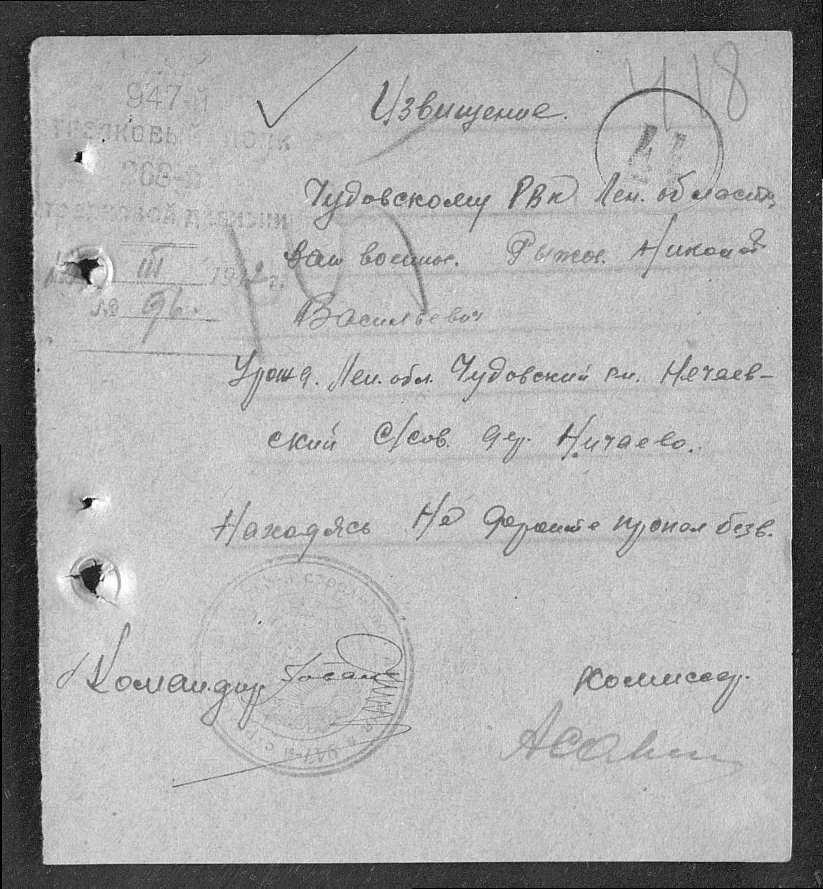 947-й
стрелковый полк
268-й
стрелковой дивизии
III 1942 г.
№ 96.
418
Извищение.
Чудовскому РВК Лен. области
Ваш военнос. Рыжов. Николай
Васильевич
Урож д. Лен. обл. Чудовский рн. Нечаев-
ский С/сов. дер. Ничаево.
Находясь На фронте пропал безв.
Командир
Комиссар.